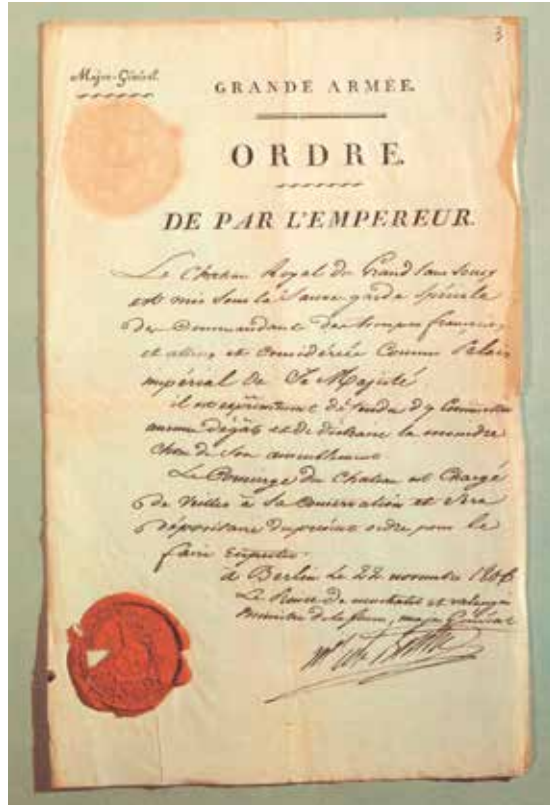 3
Major-Général.
GRANDE ARMÉE.
ORDRE.
DE PAR L'EMPEREUR.
Le Chateau Royal de Grand Sans Soucy
est mis sous la Sauve garde spéciale
du Commandant des troupes françaises
et alliés et considérée Comme Palais
impérial de Sa Majesté
il est expressément défendu d'y Commettre
aucuns dégâts et de distraire la moindre
chose de Son ameublement
Le Concierge du Chateau est Chargé
de Veiller à Sa Conservation et sera
dépositaire du présent ordre pour le
faire Respecter.
à Berlin le 22 novembre 1806
Le Prince de neuchatel et valengin
Ministre de la Guerre, major Général